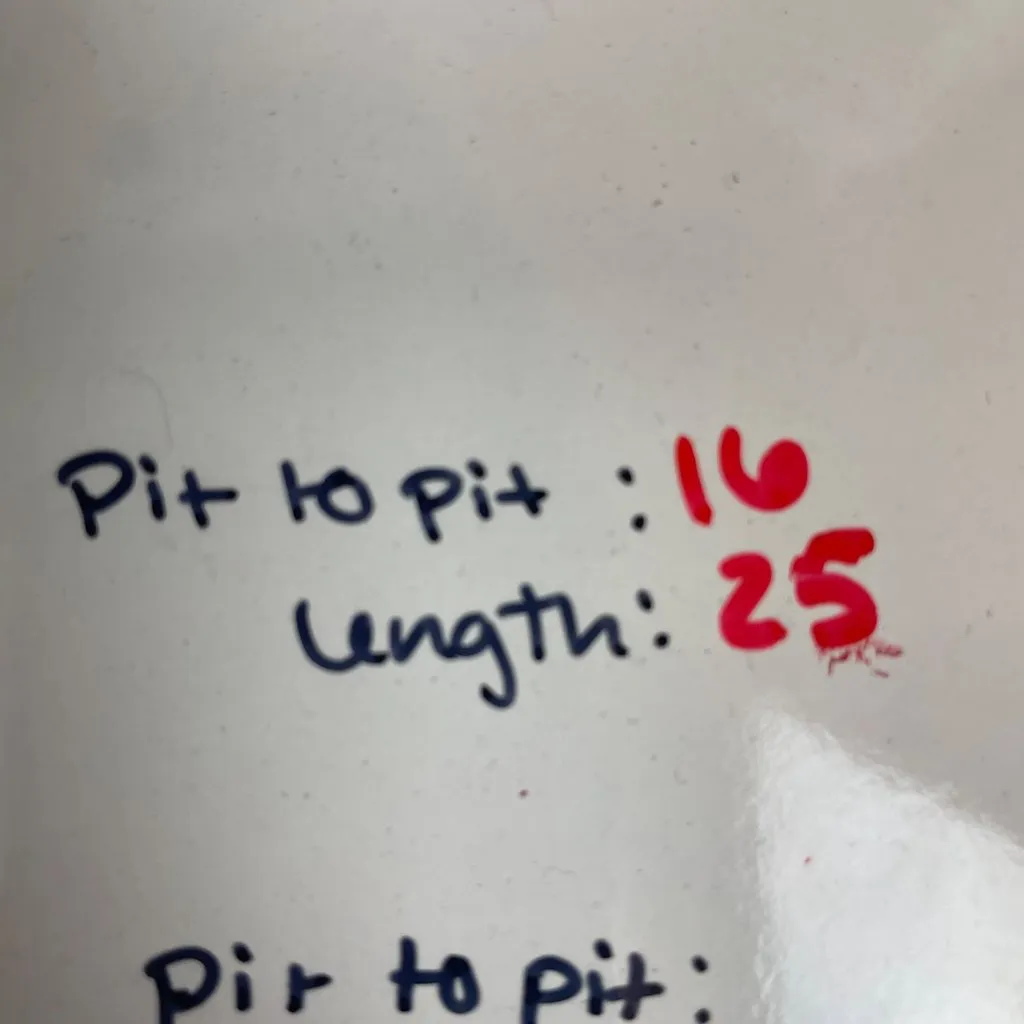 Pit to pit : 16
length: 25
Pit to pit: